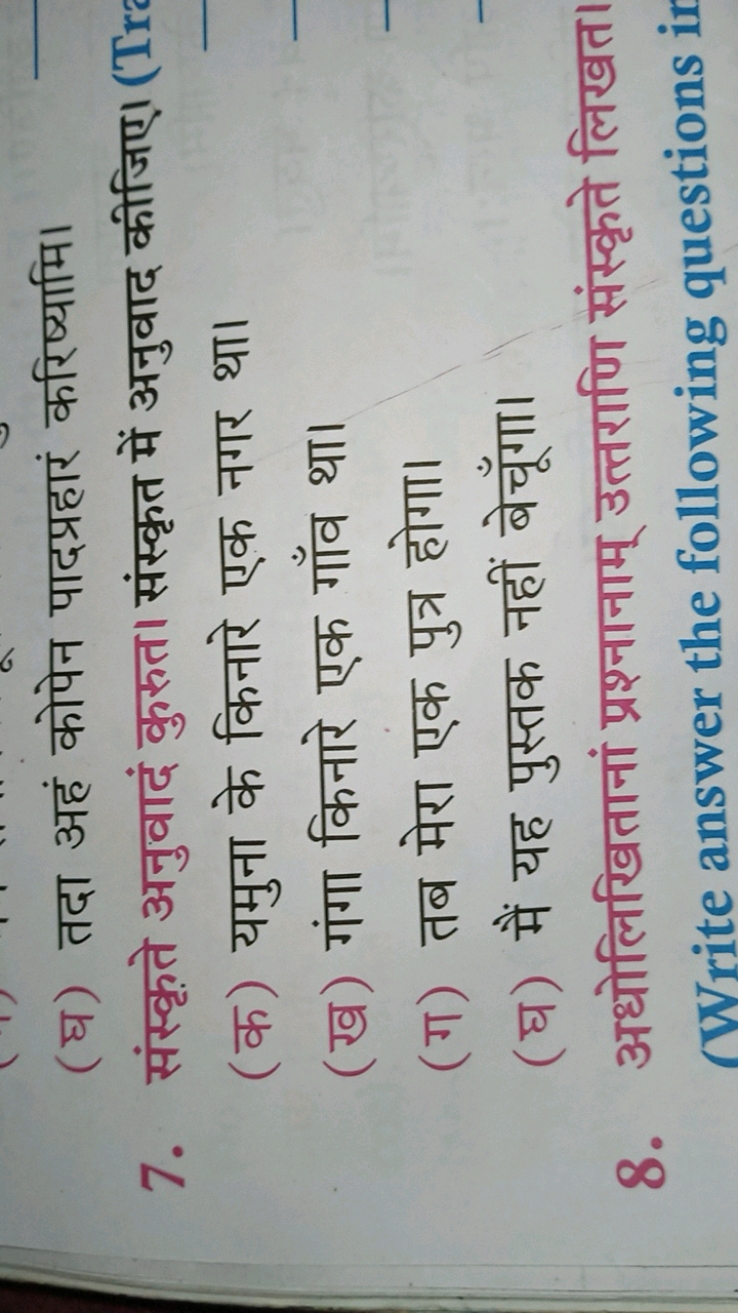 (घ) तदा अहं कोपेन पादप्रहारं करिष्यामि।
7. संस्कृते अनुवादं कुरुत। संस्कृत में अनुवाद कीजिए। (Tra
(क) यमुना के किनारे एक नगर था।
(ख) गंगा किनारे एक गाँव था।
(ग) तब मेरा एक पुत्र होगा।
(घ) मैं यह पुस्तक नहीं बेचूँगा।
8. अधोलिखितानां प्रश्नानाम् उत्तराणि संस्कृते लिखत।
(Write answer the following questions in